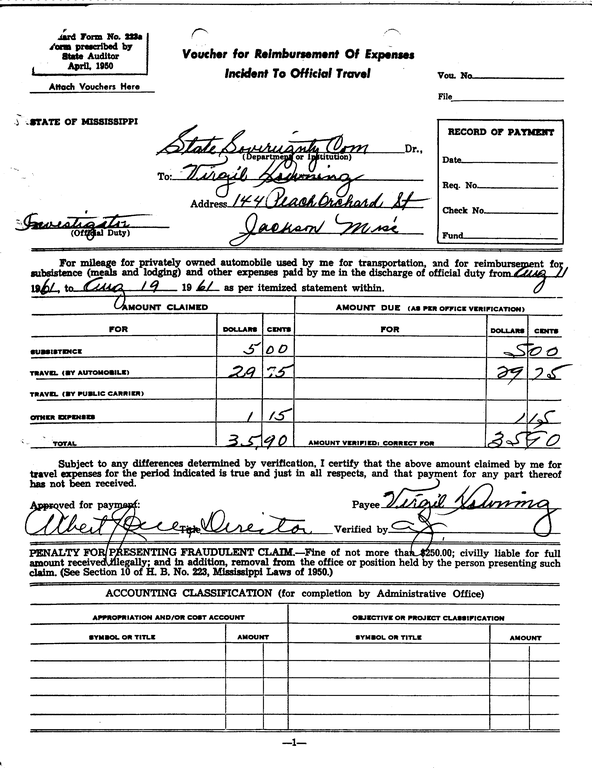 dard Form No. 223a
Form prescribed by
State Auditor
April, 1950
Attach Vouchers Here
Voucher for Reimbursement Of Expenses
Incident To Official Travel
Vou. No.
File
STATE OF MISSISSIPPI
State Soveruignty Com Dr.,
(Department or Institution)
To: Virgil Downing
Address 144 Peach Orchard St
Jackson Miss
Investigator
(Official Duty)
RECORD OF PAYMENT
Date
Req. No.
Check No.
Fund
For mileage for privately owned automobile used by me for transportation, and for reimbursement for
subsistence (meals and lodging) and other expenses paid by me in the discharge of official duty from Aug 11
1961, to Aug 19 1961 as per itemized statement within.
AMOUNT CLAIMED AMOUNT DUE (AS PER OFFICE VERIFICATION)
FOR DOLLARS CENTS FOR DOLLARS CENTS
SUBSISTENCE 5 00 5 00
TRAVEL (BY AUTOMOBILE) 29 75 29 75
TRAVEL (BY PUBLIC CARRIER)
OTHER EXPENSES 1 15 1 15
TOTAL 35 90 AMOUNT VERIFIED: CORRECT FOR 35 90
Subject to any differences determined by verification, I certify that the above amount claimed by me for
travel expenses for the period indicated is true and just in all respects, and that payment for any part thereof
has not been received.
Approved for payment: Payee Virgil Downing
Albert Jones Title Director Verified by
PENALTY FOR PRESENTING FRAUDULENT CLAIM.—Fine of not more than $250.00; civilly liable for full
amount received illegally; and in addition, removal from the office or position held by the person presenting such
claim. (See Section 10 of H. B. No. 223, Mississippi Laws of 1950.)
ACCOUNTING CLASSIFICATION (for completion by Administrative Office)
APPROPRIATION AND/OR COST ACCOUNT OBJECTIVE OR PROJECT CLASSIFICATION
SYMBOL OR TITLE AMOUNT SYMBOL OR TITLE AMOUNT
—1—